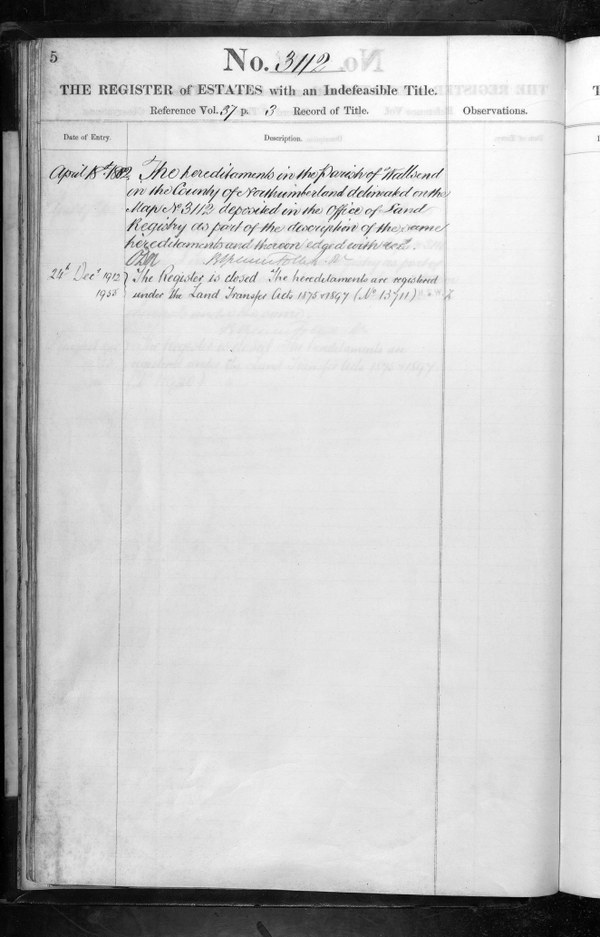 5
No. 3112
THE REGISTER of ESTATES with an Indefeasible Title.
Reference Vol. 37 p. 3 Record of Title.
Observations.
Date of Entry.
Description.
April 18th 1882
The hereditaments in the Parish of Wallsend
in the County of Northumberland delineated on the
Map No 3112 deposited in the Office of Land
Registry as part of the description of the same
hereditaments and thereon edged with red.
24th Decr 1912
The Register is closed The hereditaments are registered
1955
under the Land Transfer Acts 1875 & 1897 (No 13711)